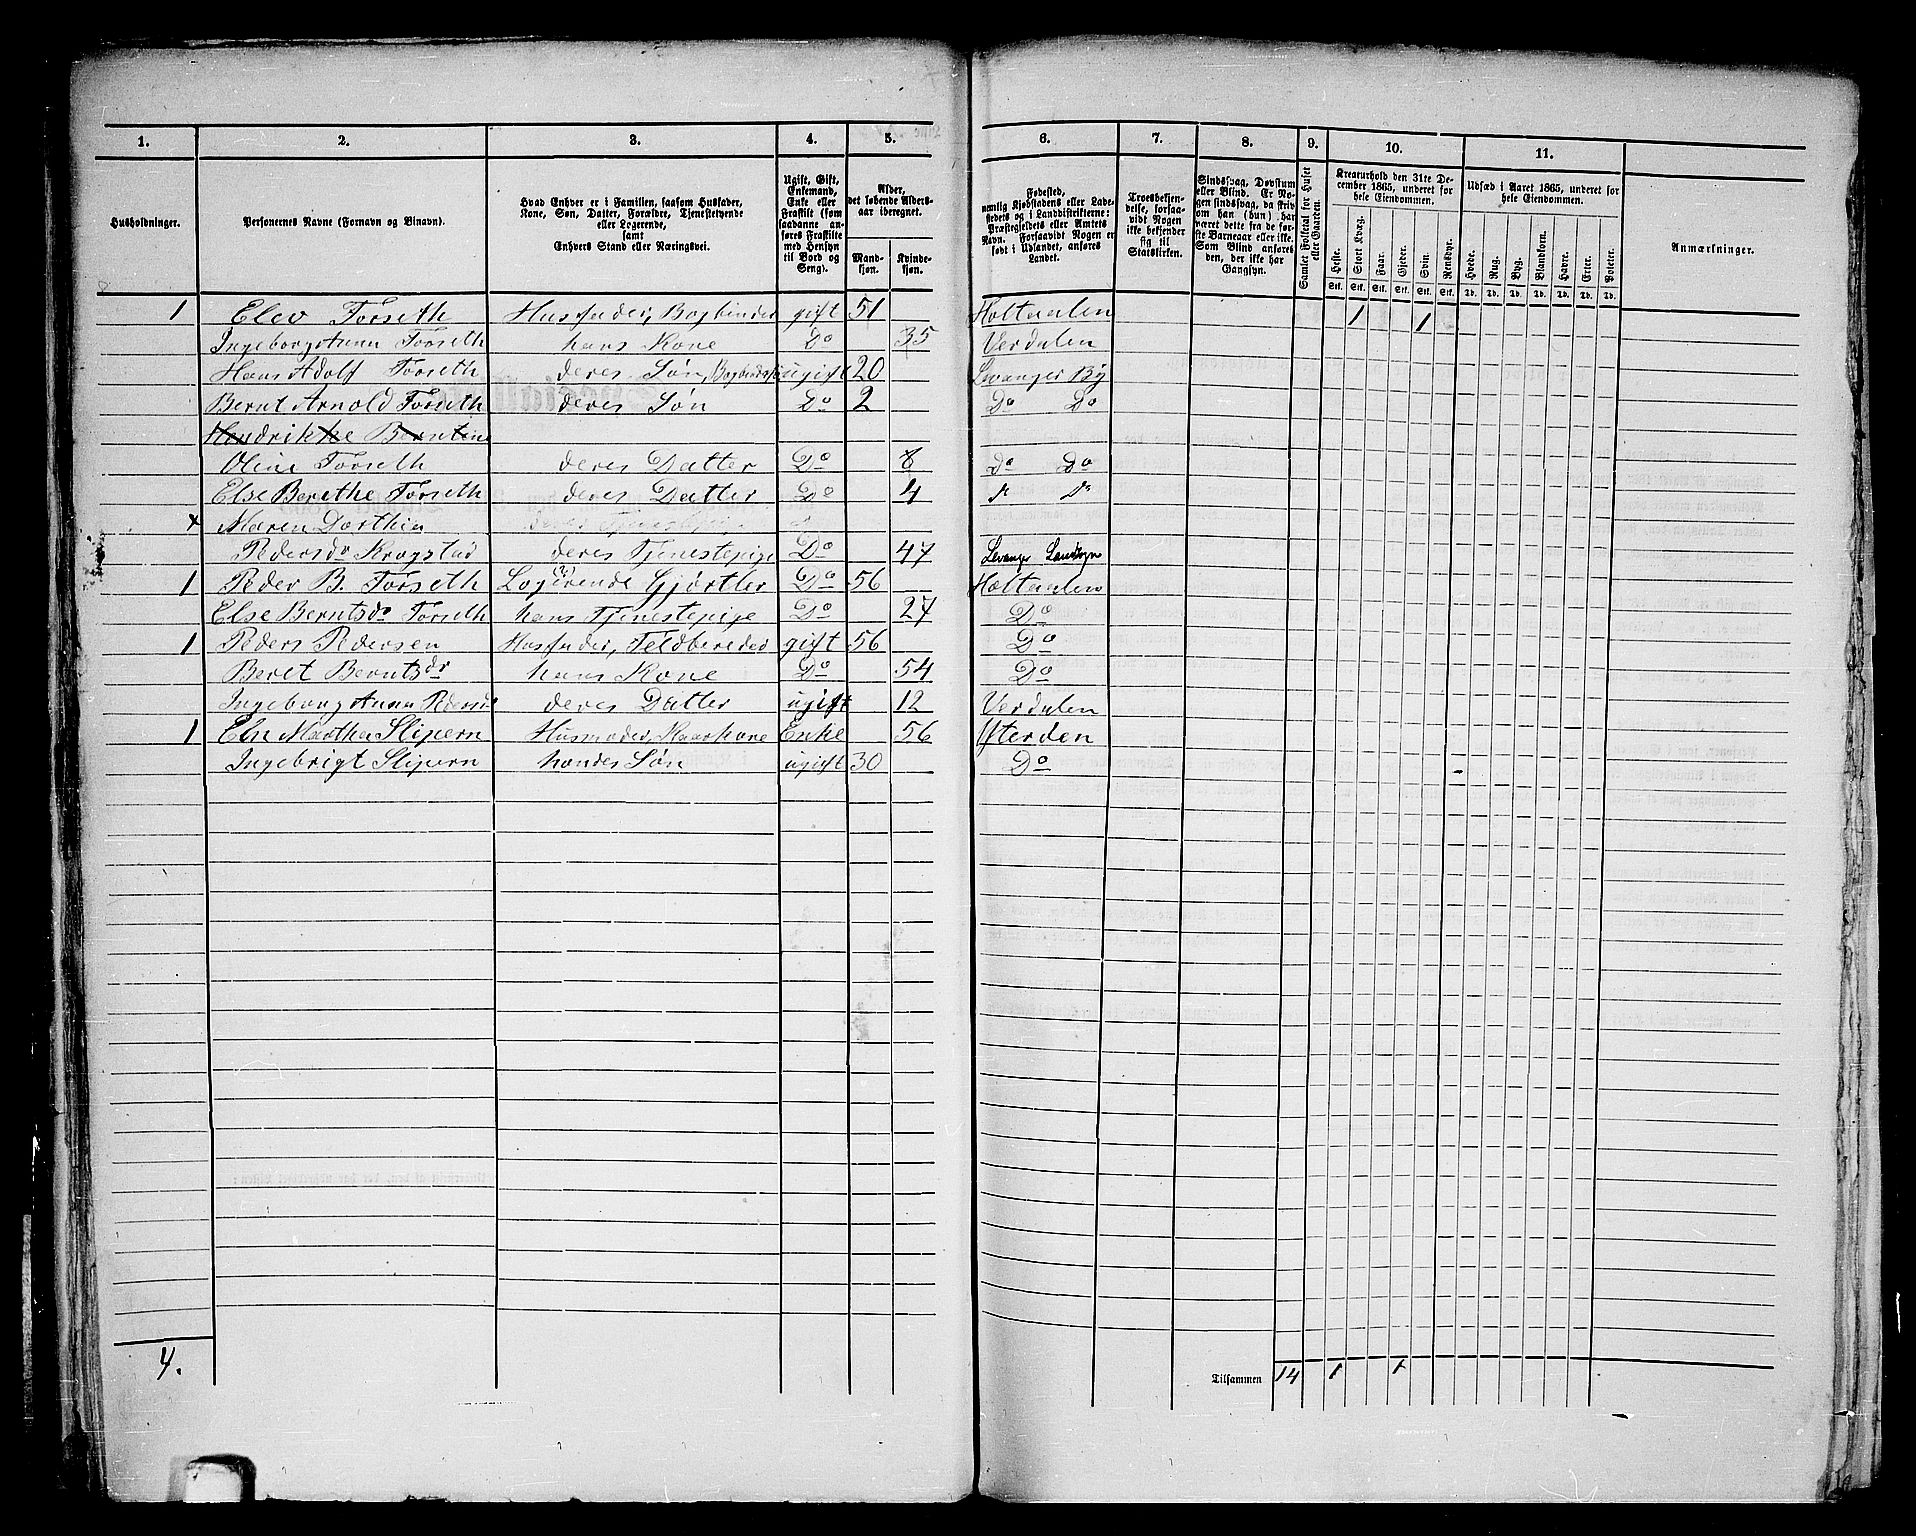 1. 2. 3. 4. 5. 6. 7. 8. 9. 10. 11.
Husholdninger.
Personernes Navne (Fornavn og Binavn).
Hvad Enhver er i Familien, saasom Husfader,
Kone, Søn, Datter, Forældre, Tjenestetyende
eller Logerende,
samt
Enhvers Stand eller Næringsvei.
Ugift, Gift,
Enkemand,
Enke eller
Fraskilt (som
saadanne an-
føres Fraskilte
med Hensyn
til Bord og
Seng).
Alder,
det løbende Alders-
aar iberegnet.
Mand-
kjøn.
Kvinde-
kjøn.
Fødested,
nemlig Kjøbstadens eller Lade-
stedets og i Landdistrikterne:
Præstegjeldets eller Amtets
Navn. Forsaavidt Nogen er
født i Udlandet, anføres
Landet.
Troesbekjen-
delse, forsaa-
vidt Nogen
ikke bekjender
sig til
Statskirken.
Sindssvag, Døvstum
eller Blind. Er No-
gen sindssvag, da skriv
om han (hun) har
været dette fra de før-
ste Barneaar eller ikke.
Som Blind anføres
den, der ikke har
Gangsyn.
Samlet Folketal for Huset
eller Gaarden.
Kreaturhold den 31te De-
cember 1865, underet for
hele Eiendommen.
Heste. Stort Kvæg. Faar. Gjeder. Svin. Rensdyr.
Stk. Stk. Stk. Stk. Stk. Stk.
Udsæd i Aaret 1865, underet for
hele Eiendommen.
Hvede. Rug. Byg. Blandkorn. Havre. Erter. Poteter.
Td. Td. Td. Td. Td. Td. Td.
Anmærkninger.
1 Elev Forseth Husfader, Bogbinder gift 51 Holtaalen 1 1
Ingeborg Anna Forseth hans Kone Do 35 Verdalen
Hans Adolf Forseth deres Søn, ugift 20 Levanger By
Bernt Arnold Forseth deres Søn Do 2 Do Do
Hendrikke Berntine
Oline Forseth deres Datter Do 8 Do Do
Else Berethe Forseth deres Datter Do 4 Do Do
x Maren Dorthin
Pedersdr Krogstad deres Tjenestepige Do 47 Levanger Landsogn
1 Peder B. Forseth Logerende Gjørtler Do 56 Holtaalen
Else Berntsdr Forseth hans Tjenestepige Do 27 Do
1 Peders Pedersen Husfader, Feldbereder gift 56 Do
Beret Berntsdr hans Kone Do 54 Do
Ingeborg Anna Pedersdr deres Datter ugift 12 Verdalen
1 Eln Martha Slipern Husmoder, Kaarkone Enke 56 Ytterøen
Ingebrigt Slipern hendes Søn ugift 30 Do
4. Tilsammen 14 1 1